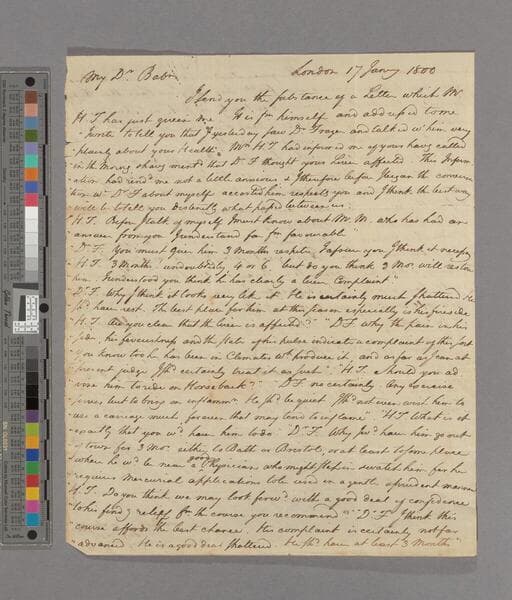 My Dr. Bob
London 17 Jany 1800
I send you the substance of a Letter which Mr
H. T. has just given me It is fm himself and address'd to me
"I write to tell you that I yesterday saw Dr Frazer and talked wh him very
plainly about your Health. Mrs H T had informed me of yours having called
in the Morng & having mentd that Dr F thought your Liver affected This Inform
ation had rendd me not a little anxious & I therefore before I began the conversa
tion wh Dr F about myself accosted him respectg you and I think the best way
will be to tell you distinctly what passed between us
H T. Before I talk of myself I must know about Mr M. who has had an
answer from you I understand far fm favourable"
Dr F. You must give him 3 Months respite I assure you I think it necessy
H T 3 Months, undoubtedly, 4 or 6, but do you think 3 Mos. will restore
him. I understood you think he has clearly a Liver Complaint"
Dr F. Why I think it looks very like it. He is certainly much shattered He
shd have rest. The best place for him at this season especially is his fireside
H T. Are you clear that the Liver is affected?" Dr F. Why the pain in his
side his feverishness and the state of his pulse indicate a complaint of this sort
you know too he has been in Climates wh produce it, and as far as I can at
present judge I shd certainly treat it as such" H T. Should you ad
vise him to ride on Horseback?" Dr F no certainly. Any exercise
serves but to bring on inflammn. He shd be quiet I shd not even wish him to
use a carriage much forever that may tend to inflame" H T What is it
exactly that you wd have him to do" Dr F. Why I wd have him go out
of town for 3 Mos. either to Bath or Bristol, or at least to some place
where he wd be near a good Physician who might step in & watch him for he
requires Mercurial applications to be used in a gentle & prudent manner
H T. Do you think we may look forwd with a good deal of confidence
to his findg relief fm the course you recommend" Dr F. I think this
course affords the best chance. His complaint is certainly not far
advanced He is a good deal shattered He shd have at least 3 Months"